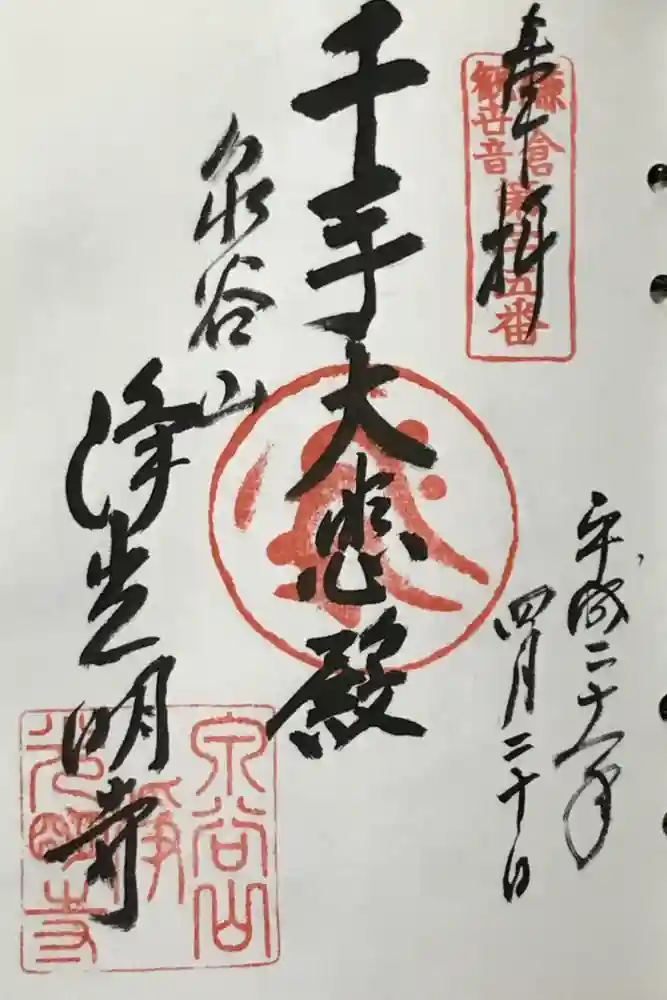 奉拝
鎌倉
観世音
第廿五番
平成二十八年
四月二十日
千手大悲殿
泉谷山
浄光明寺
泉谷山
浄
光明寺